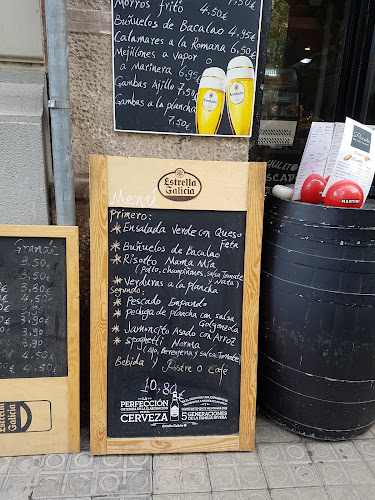 Morros frito 4,50€
Buñuelos de Bacalao 4,95€
Calamares a la Romana 6,50€
Mejillones a vapor o
a Marinera 6,95
Gambas Ajillo 7,50
Gambas a la plancha
7,50€
Estrella
Galicia
Menú
Primero:
* Ensalada Verde con Queso
Feta
* Buñuelos de Bacalao
* Risotto Mama Mia
(Pollo, champiñones, salsa Tomate
y Nata)
* Verduras a la plancha
Segundo:
* Pescado Empanado
* pechuga de plancha con salsa
Golgonzola
* Jamoncito Asado con Arroz
* spaghetti Norma
(Ajo, Berenjena, salsa Tomate)
Bebida y Postre o Café
10,80€
PERFECCIÓN
CERVEZA
5 GENERACIONES
DE LA FAMILIA RIVERA
Grande
3,50
3,50
3,50€
4,50€
MARTINI
Estrella
Galicia